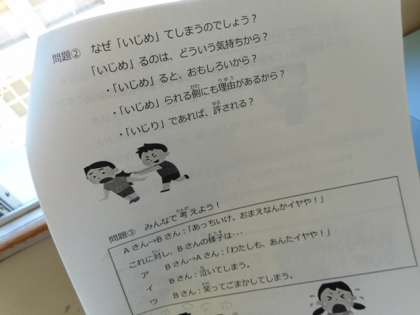 問題② なぜ「いじめ」てしまうのでしょう？
「いじめ」るのは、どういう気持ちから？
・「いじめ」ると、おもしろいから？
・「いじめ」られる側にも理由があるから？
・「いじり」であれば、許される？
問題③ みんなで考えよう！
Aさん→Bさん：「あっちいけ。おまえなんかイヤや！」
これに対し、Bさんの様子は…
ア Bさん→Aさん：「わたしも、あんたイヤや！」
イ Bさん：泣いてしまう。
ウ Bさん：笑ってごまかしてしまう。